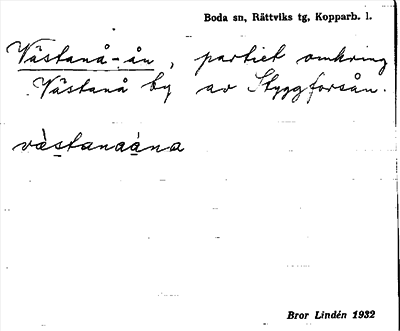 Boda sn, Rättviks tg, Kopparb. l.
Västanå-ån, partiet omkring
Västanå by av Styggforsån.
vàstanaána
Bror Lindén 1932